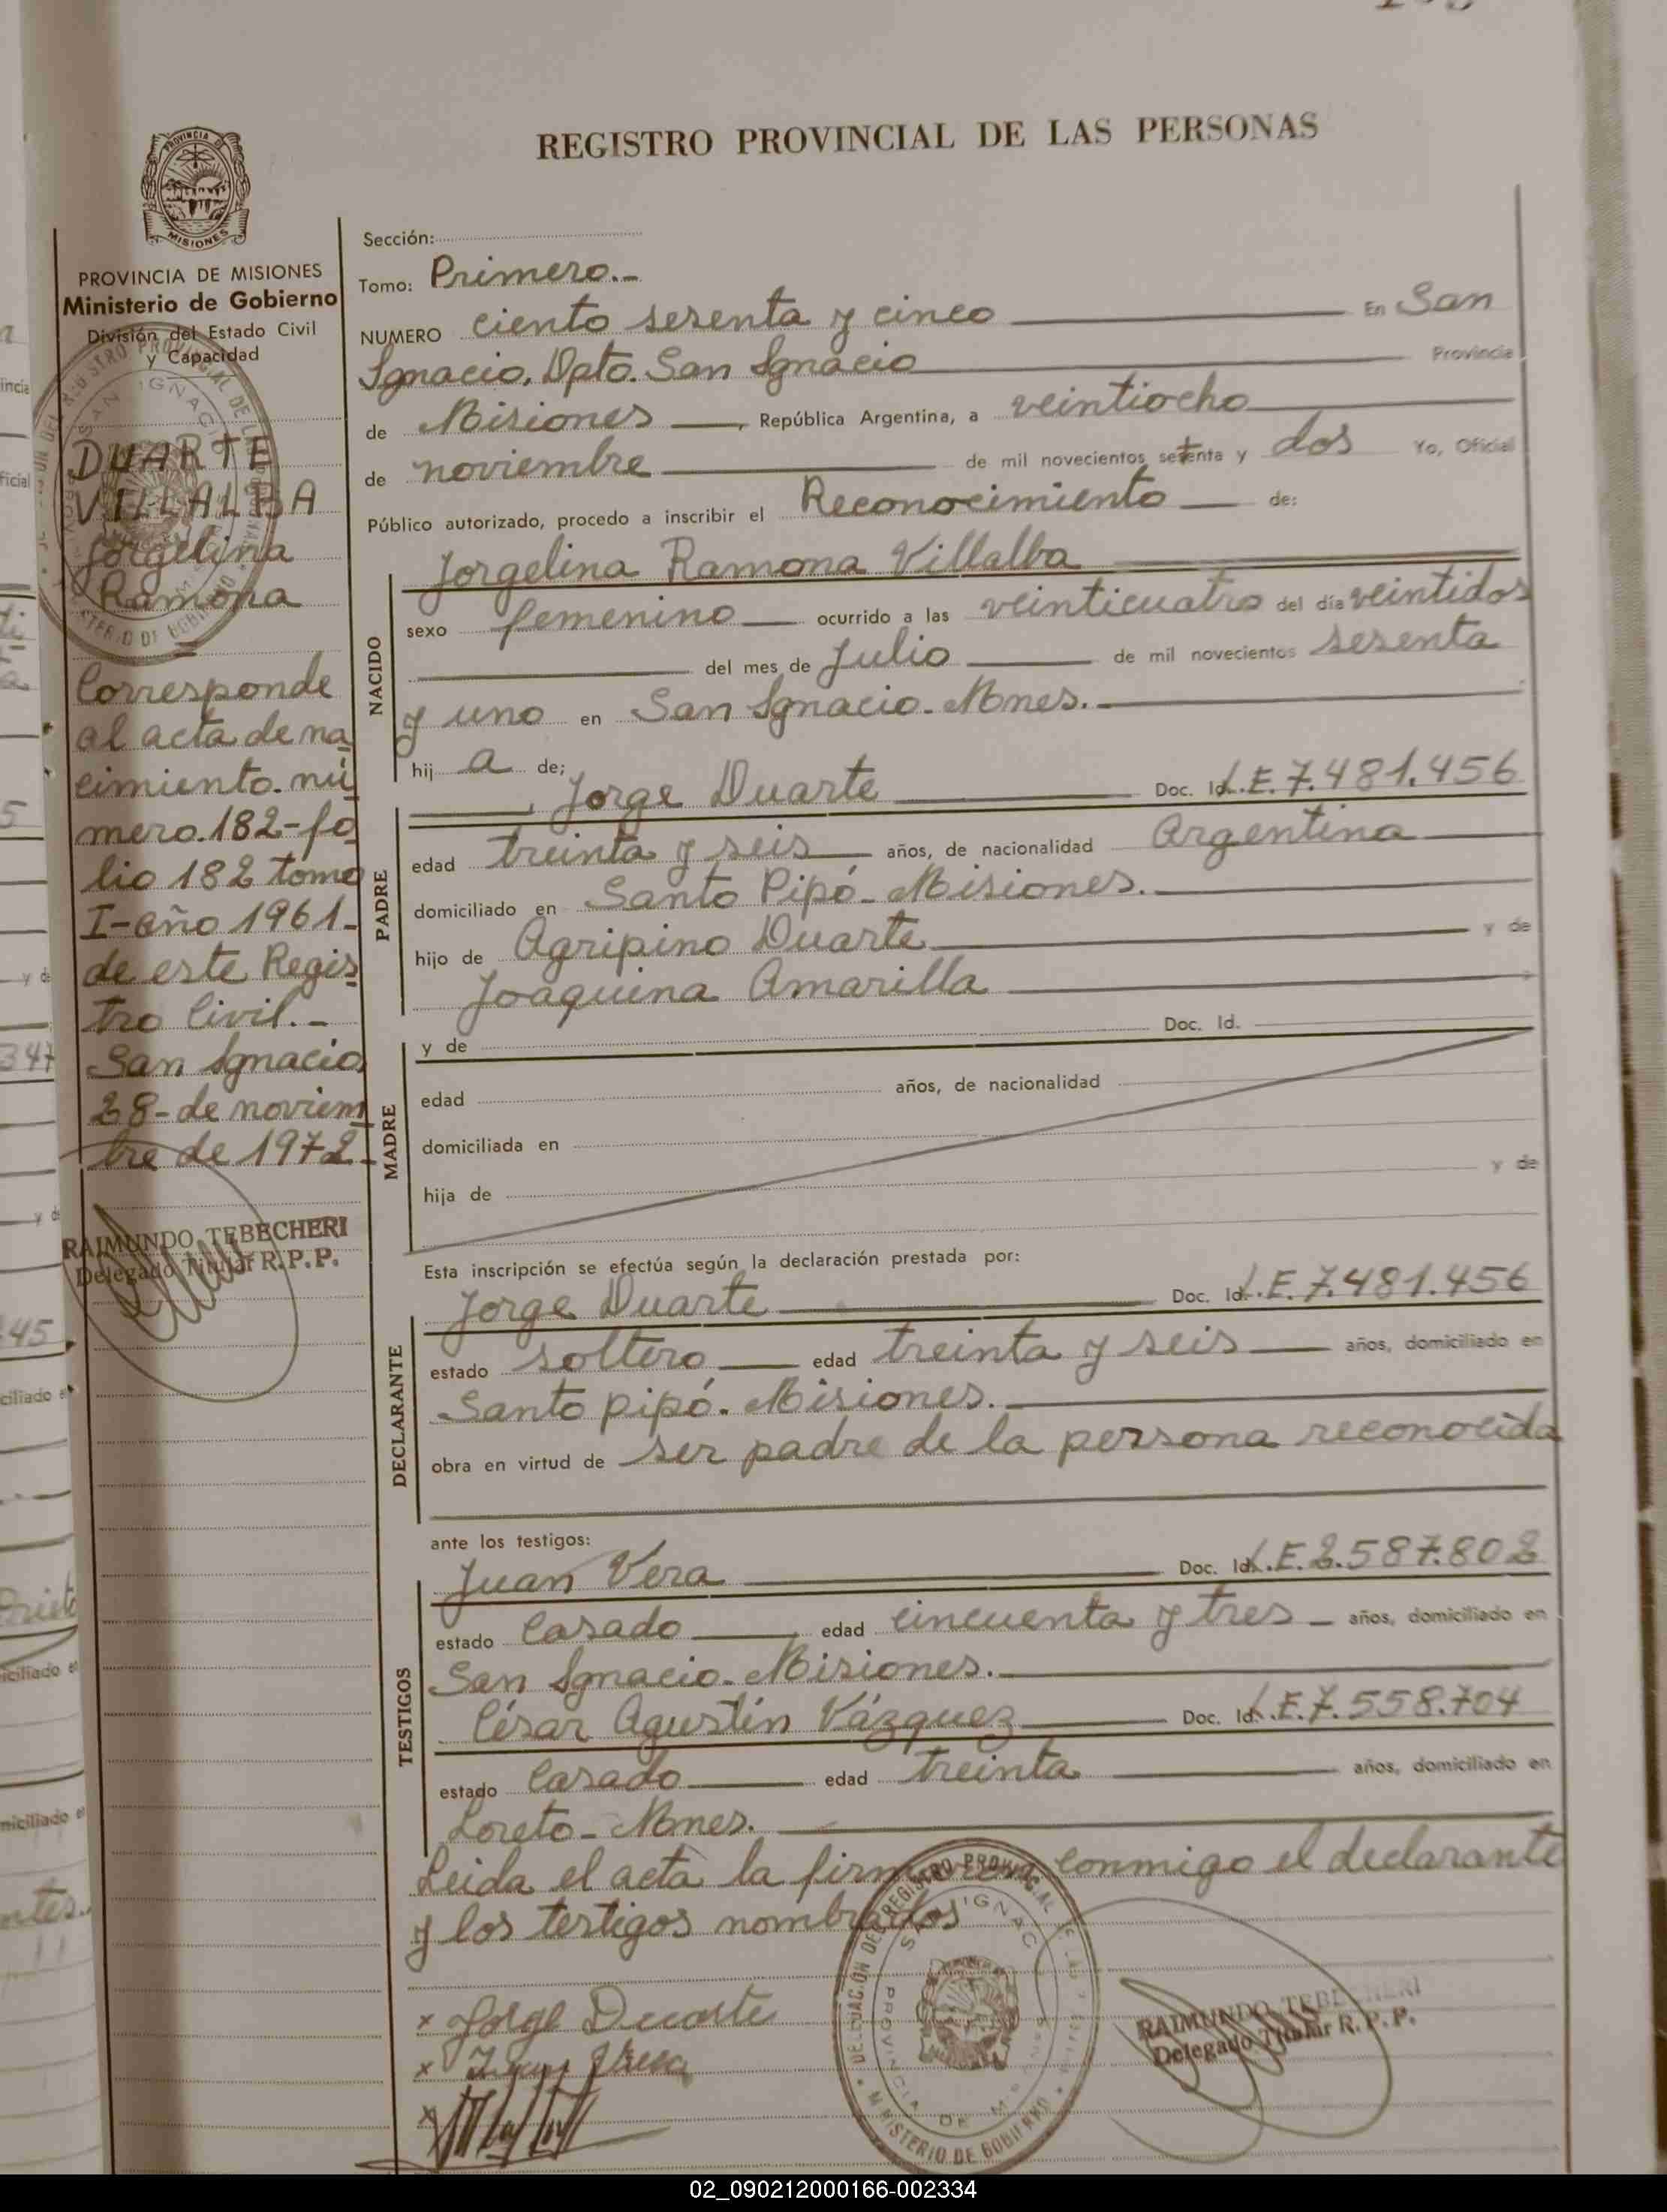 REGISTRO PROVINCIAL DE LAS PERSONAS
PROVINCIA DE MISIONES
Ministerio de Gobierno
División del Estado Civil
y Capacidad
DUARTE
VILLALBA
Jorgelina
Ramona
Corresponde
al acta de na
cimiento nú
mero 182-fo
lio 182 tomo
I-año 1961-
de este Regis
tro Civil.-
San Ignacio,
28-de noviem
bre de 1972-
RAIMUNDO TEBECHERI
Delegado Titular R.P.P.
Sección:
Tomo: Primero.-
NUMERO ciento sesenta y cinco En San
Ignacio, Dpto. San Ignacio Provincia
de Misiones, República Argentina, a veintiocho
de noviembre de mil novecientos setenta y dos Yo, Oficial
Público autorizado, procedo a inscribir el Reconocimiento de:
NACIDO
Jorgelina Ramona Villalba
sexo femenino ocurrido a las veinticuatro del día veintidos
del mes de Julio de mil novecientos sesenta
y uno en San Ignacio-Mnes.-
hij a de;
PADRE
Jorge Duarte Doc. Id. L.E.7.481.456
edad treinta y seis años, de nacionalidad Argentina
domiciliado en Santo Pipó-Misiones.
hijo de Agripino Duarte y de
Joaquina Amarilla
MADRE
y de Doc. Id.
edad años, de nacionalidad
domiciliada en
hija de y de
Esta inscripción se efectúa según la declaración prestada por:
DECLARANTE
Jorge Duarte Doc. Id. L.E.7.481.456
estado soltero edad treinta y seis años, domiciliado en
Santo pipó-Misiones.
obra en virtud de ser padre de la persona reconocida
ante los testigos:
TESTIGOS
Juan Vera Doc. Id. L.E.2.587.802
estado Casado edad cincuenta y tres años, domiciliado en
San Ignacio-Misiones.
César Agustín Vázquez Doc. Id. L.E.7.558.704
estado Casado edad treinta años, domiciliado en
Loreto-Mnes.
Leida el acta la firman conmigo el declarante
y los testigos nombrados
x Jorge Duarte
x Juan Vera
x
RAIMUNDO TEBECHERI
Delegado Titular R.P.P.
DELEGACIÓN DEL REGISTRO PROVINCIAL DE LAS
SAN IGNACIO
PROVINCIA DE M
MINISTERIO DE GOBIERNO
02_090212000166-002334